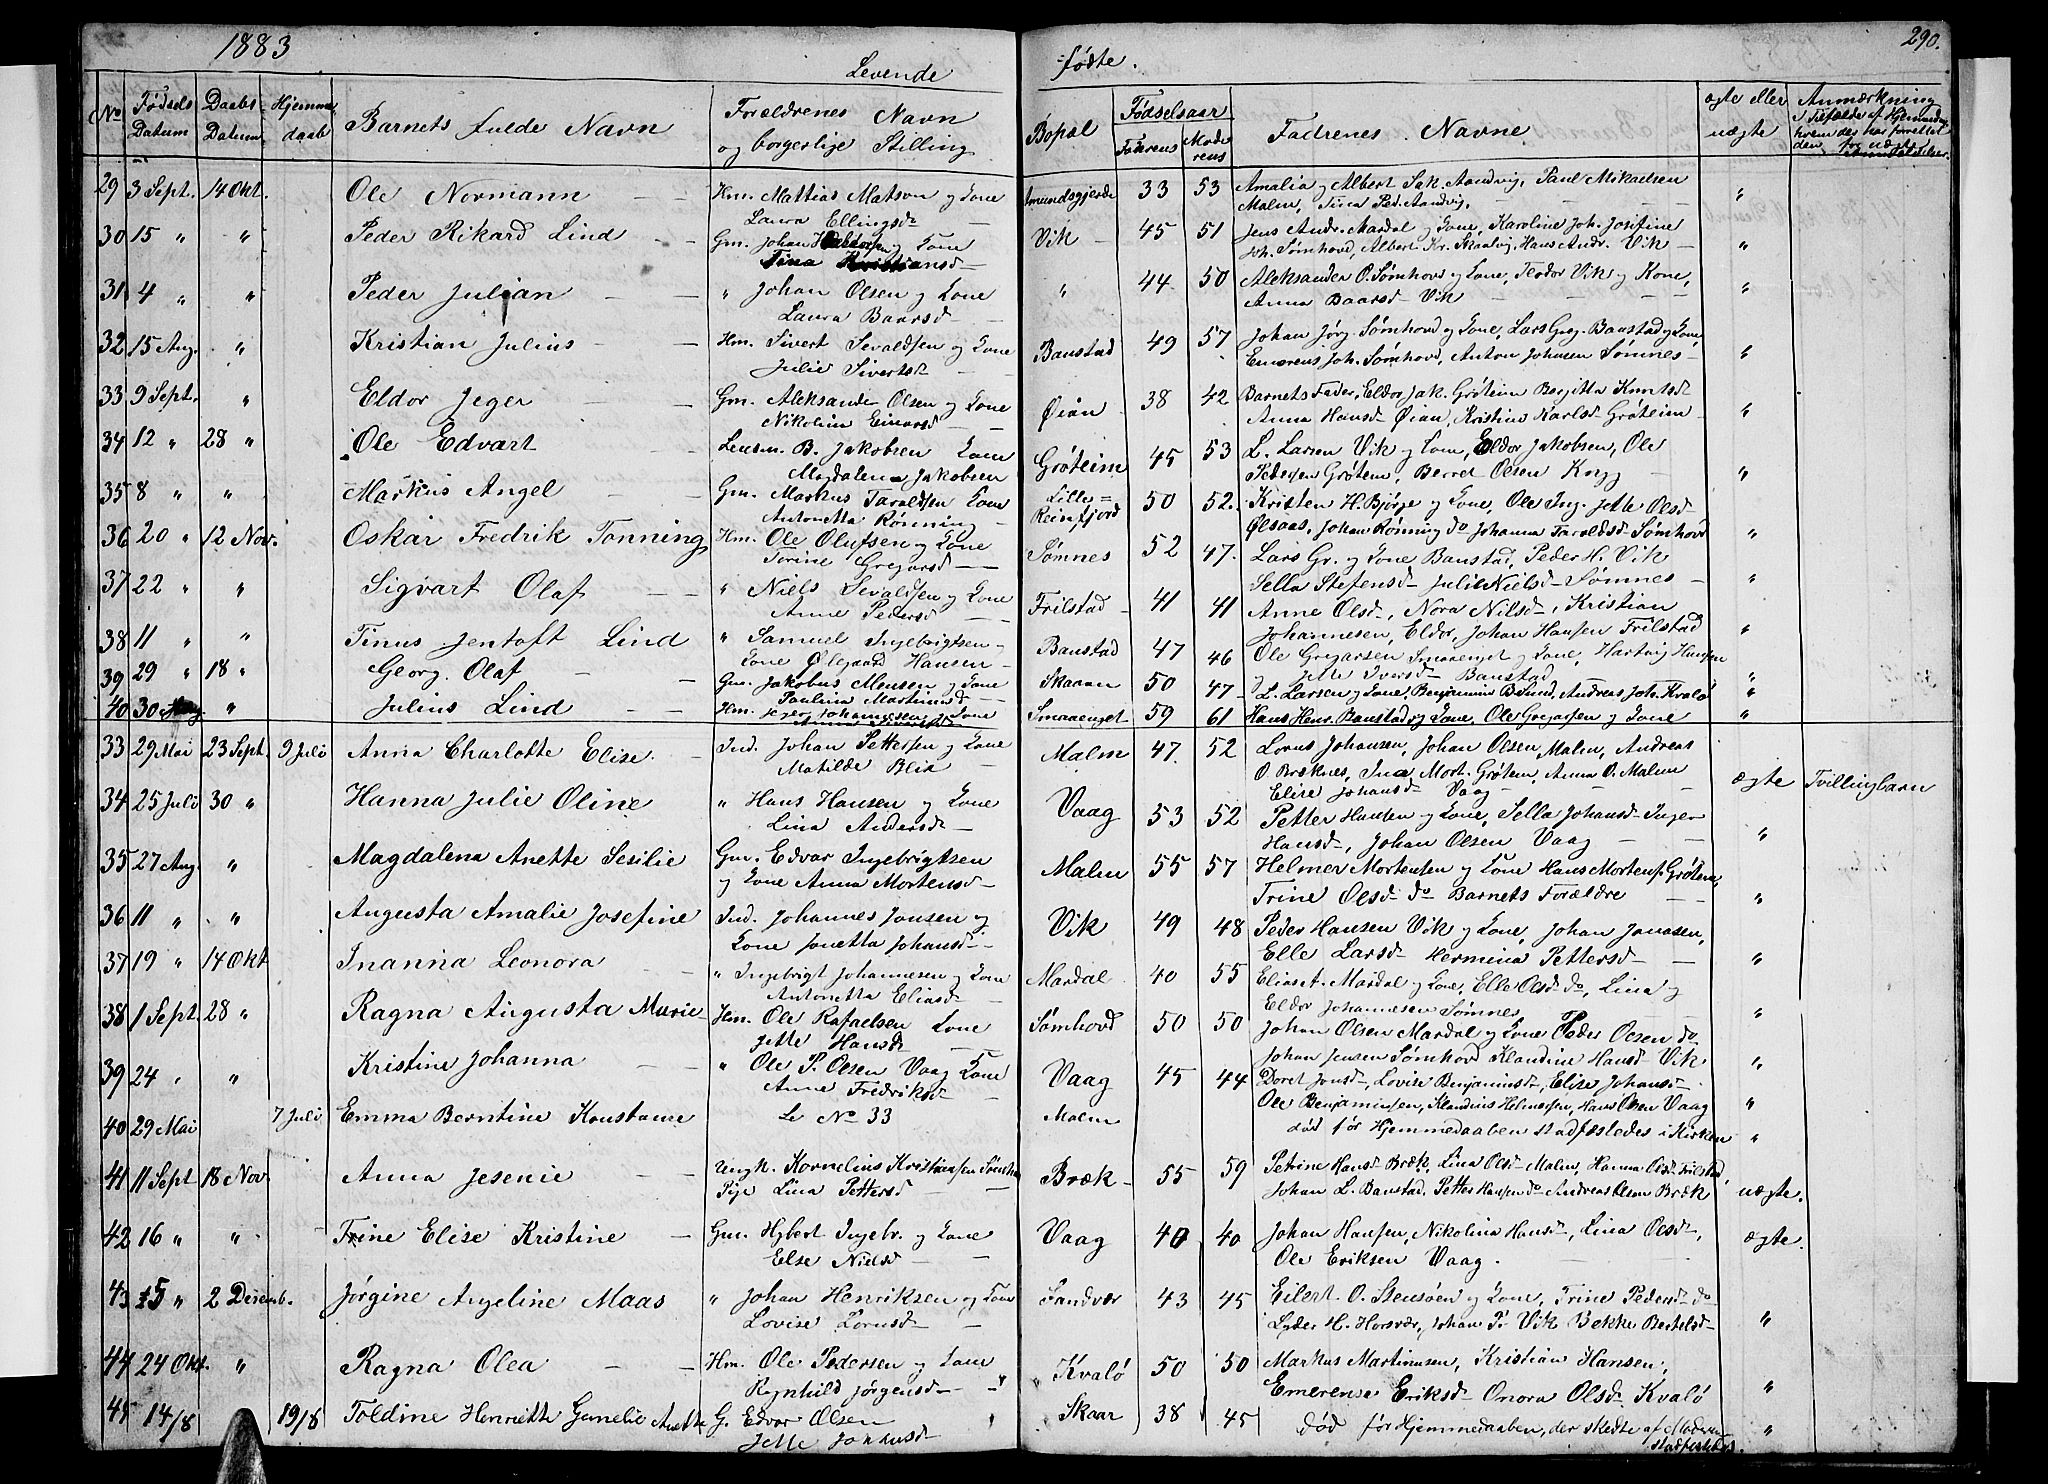 1883
290.
Levende
fødte.
No
Fødsels Datum
Daabs Datum
Hjemme daab
Barnets fulde Navn
Forældrenes Navn og borgerlige Stilling
Bopæl
Fødselsaar
Fadrens
Moderens
Fadrenes Navne
ægte eller uægte
Anmærkning
29 3 Sept. 14 Okt. Ole Normann Hm. Mattias Matson og Kone Laura Ellingsd 33 53 Amalia og Albert Sak. Aandvig, Paul Mikaelsen Malm, Tina Ped. Aandvig, "
30 15 " " Peder Rikard Lind Gm. Johan og Kone Vik 45 51 Jens Andr. Mardal og Kone, Karoline Joh. Josefine Joh. Sømhovd, Albert Kr. Skaalvig, Hans Andr. Vik "
31 4 " " Peder Julian " Johan Olsen og Kone Laura Baarsd " 44 50 Aleksander O. Sømhovd og Kone, Teodor Vik og Kone, Anna Baarsd Vik "
32 15 Aug. " Kristian Julius Hm. Sivert Sevaldsen og Kone Julie Sivertsd Baustad 49 57 Johan Jørg. Sømhovd og Kone, Lars Greg. Baustad og Kone, Emerens Joh. Sømhovd, Anton Johansen Sømnes "
33 9 Sept. " Eldor Jeger Gm. Aleksander Olsen og Kone Nikolina Einarsd Øian 38 42 Barnets Fader, Eldor Jak. Grøteim Bergitta Knutsd Anna Hansd Øian, Kristine Karlsd Grøteim "
34 12 " 28 " Ole Edvart Lensm. B. Jakobsen Kone Magdalena Jakobsen Grøteim 45 53 L. Larsen Vik og Kone, Eldor Jakobsen, Ole Pedersen Grøtem, Berret Olsen "
35 8 " " Markus Angel Gm. Markus Taraldsen Kone Antonetta Rønning Lille= Reinfjord 50 52. Kristen H. Bjørge og Kone, Ole Ing. Jette Olsd Ølsaas, Johan Rønning do Johanna Taraldsd Sømhovd "
36 20 " 12 Nov. Oskar Fredrik Tønning Hm. Ole Olufsen og Kone Torine Gregarsd Sømnes 52 47. Lars Gr. og Kone Baustad, Peder H. Vik Sella Stefensd Julie Nielsd Sømnes "
37 22 " " Sigvart Olaf " Niels Sevaldsen og Kone Anne Pedersd Frilstad 41 41 Anne Olsd, Nora Nilsd, Kristian Johannesen, Eldor, Johan Hansen Frilstad "
38 11 " " Tinus Jentoft Lind " Samuel Ingebrigtsen og Kone Ølegaard Hansen Baustad 47 46 Ole Gregarsen Smaaenget og Kone, Hartvig Hansen og Jette Iversd Baustad "
39 29 " 18 " Georg Olaf Gm. Jakobus Monsen og Kone Paulina Martinusd Skaren 50 47 L. Larsen og Kone, Benjamin B. Lund, Andreas Joh. Kvalø "
40 30 Aug " Julius Lind Hm. Johannesen og Kone Smaaenget 59 61 Hans Henr. Baustad og Kone, Ole Gregarsen og Kone "
33 29 Mai 23 Sept. 9 Juli Anna Charlotte Elise Ind. Johan Pettersen og Kone Matilde Blix Malm 47. 52 Lorns Johansen, Johan Olsen, Malm, Andreas O. Bræknes, Ina Mort. Grøtem, Anna O. Malm Elise Johansd Vaag ægte Tvillingbarn
34 25 Juli 30 " Hanna Julie Oline " Hans Hansen og Kone Lina Andersd Vaag 53 52 Petter Hansen og Kone, Sella Johansd Inger Hansd, Johan Olsen Vaag "
35 27 Aug. " Magdalena Anette Sesilie Gm. Edvar Ingebrigtsen og Kone Anna Mortensd Malm 55 57 Helmer Mortensen og Kone Hans Mortens. Grøtem, Trine Olsd do Barnets Forældre "
36 11 " " Augusta Amalie Josefine Ind. Johannes Jonsen og Kone Jonetta Johansd Vik 49 48 Peder Hansen Vik og Kone, Johan Jonassen, Elle Larsd Hermina Pettersd "
37 19 " 14 Okt Inanna Leonora " Ingebrigt Johannesen og Kone Antonetta Eliasd Mardal 40 55 Elias t. Mardal og Kone, Elle Olsd do, Lina og Eldor Johannesen Sømnes "
38 1 Sept. 28 " Ragna Augusta Marie Hm. Ole Rafaelsen Kone Jette Hansd Sømhovd 50 50 Johan Olsen Mardal og Kone Peder Olsen do Johan Jensen Sømhovd Klaudine Hansd Vik "
39 24 " " Kristine Johanna " Ole P. Olsen Vaag Kone Anne Fredriksd Vaag 45 44 Doret Jonsd, Lovise Benjaminsd, Elise Johansd Ole Benjaminsen, Klaudius Helmersen, Hans Olsen Vaag "
40 29 Mai 7 Juli Emma Berntine Konstanse Se No 33 Malm død før Hjemmedaaben stadfæstedes i Kirken "
41 11 Sept 18 Nov. Anna Jesenie Ungk. Kornelius Kristiansen Pige Lina Pettersd Bræk 55 59 Petrine Hansd Bræk, Lina Olsd Malm, Hanna Olsd Frilstad, Johan L. Baustad, Petter Hansen do Andreas Olsen Bræk uægte.
42 16 " " Trine Elise Kristine Gm. Hybert Ingebr. og Kone Else Nielsd Vaag 40 40 Johan Hansen, Nikolina Hansd, Lina Olsd, Ole Eriksen Vaag. ægte.
43 25 " 2 Desemb. Jørgine Angeline Maas " Johan Henriksen og Kone Lovise Lornsd Sandvær 43 45 Eilert O. Stensøen og Kone, Trine Pedersd do Lyder H. Horsvær, Johan P. Vik Bekke Bertelsd "
44 24 Okt. " Ragna Olea Hm. Ole Pedersen og Kone Ragnhild Jørgensd Kvalø 50 50 Markus Martinusen, Kristian Hansen, Emerense Eriksd Onora Olsd Kvalø "
45 14/8 19/8 Toldine Henriette Gunelie Anette G. Edvar Olsen Jette Johansd Skaar 38 45 død før Hjemmedaaben, der skedte af Moderen stadfæstedes. "